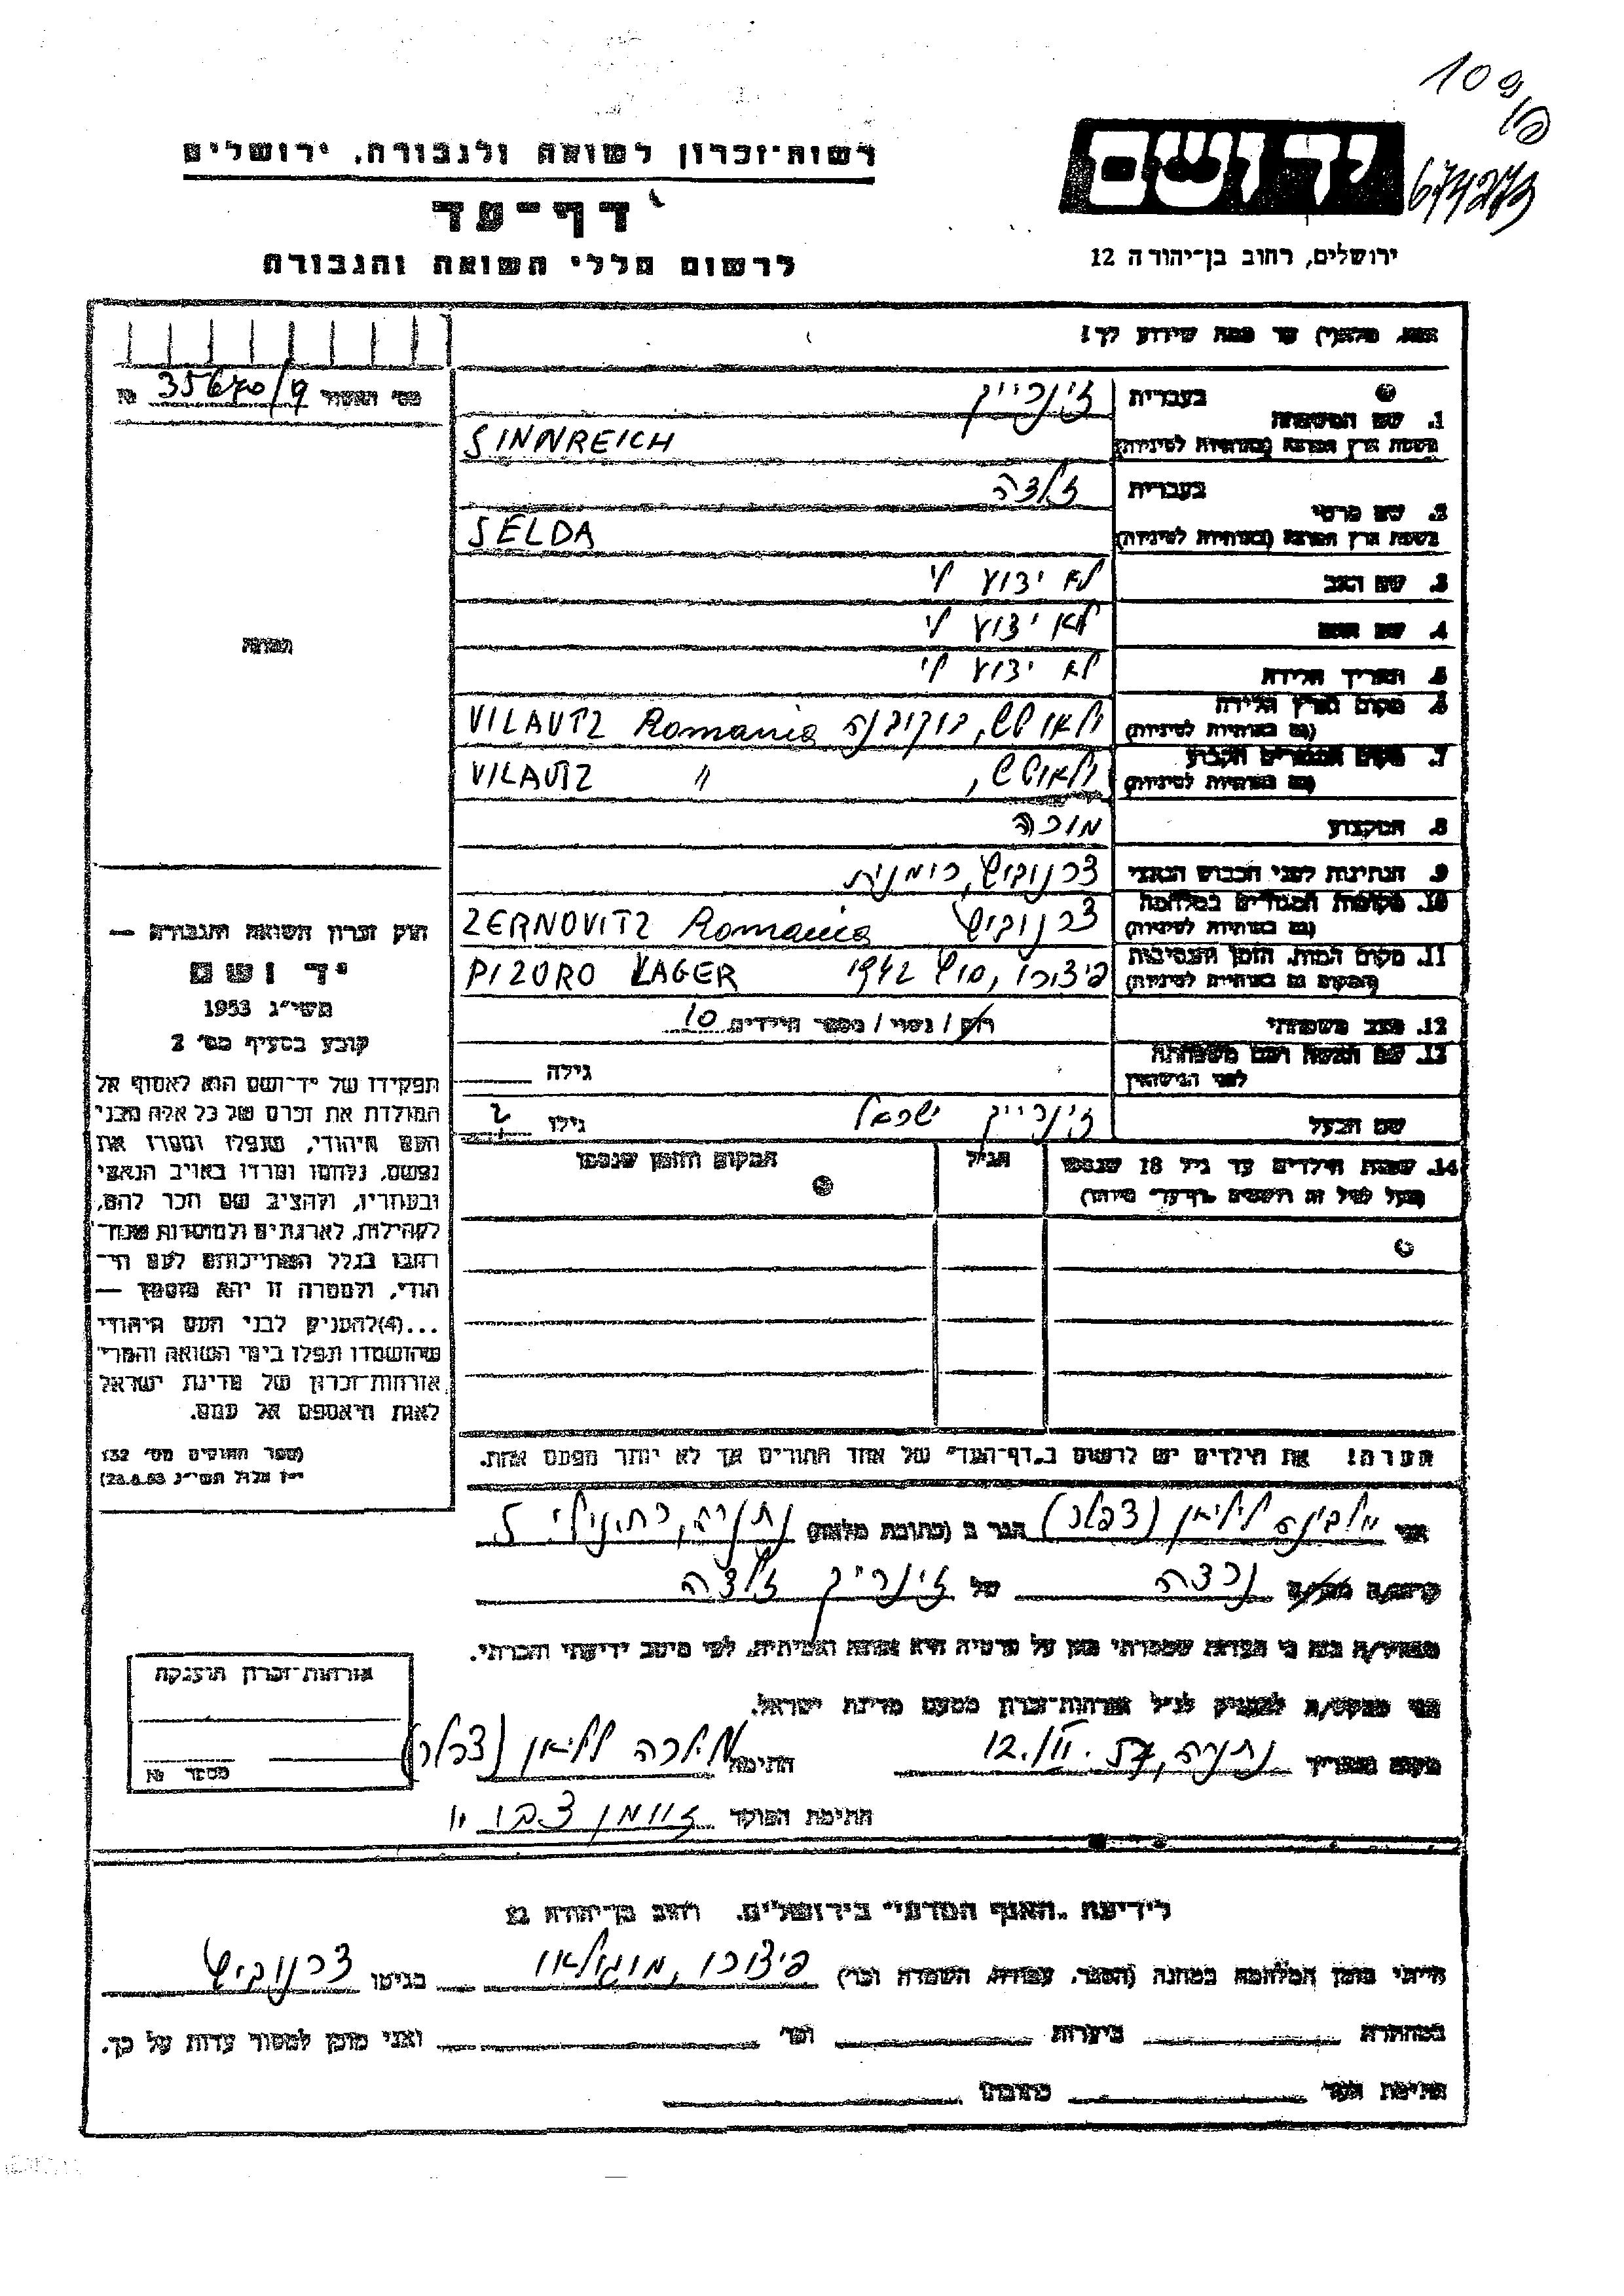 109
671273
רשות־זכרון לשואה ולגבורה, ירושלים
יד ושם
דף־עד
לרשום חללי השואה והגבורה
ירושלים, רחוב בן־יהודה 12
אנא, מלא(י) עד כמה שידוע לך!
מס' האשור 35670/9 №
1. שם המשפחה
בעברית
זינרייך
בשפת ארץ המוצא (באותיות לטיניות)
SINNREICH
2. שם פרטי
בעברית
זלדה
בשפת ארץ המוצא (באותיות לטיניות)
SELDA
3. שם האב
לא ידוע לי
4. שם האם
לא ידוע לי
5. תאריך הלידה
לא ידוע לי
6. מקום וארץ הלידה
(גם באותיות לטיניות)
VILAUTZ Romania
7. מקום המגורים הקבוע
(גם באותיות לטיניות)
VILAUTZ "
8. המקצוע
מורה
9. הנתינות לפני הכבוש הנאצי
צרנוביץ, רומנית
10. מקומות המגורים במלחמה
(גם באותיות לטיניות)
צרנוביץ ZERNOVITZ Romania
11. מקום המות, הזמן והנסיבות
(המקום גם באותיות לטיניות)
1942 PIZORO LAGER
12. מצב משפחתי
רוק / נשוי / מספר הילדים 10
13. שם האשה ושם משפחתה
לפני הנישואין
גילה
שם הבעל
זינרייך ישראל גילו
14. שמות הילדים עד גיל 18 שנספו
(מעל לגיל זה רושמים „דף־עד" מיוחד)
הגיל
המקום והזמן שנספו
הערה! את הילדים יש לרשום ב„דף־העד" של אחד ההורים אך לא יותר מפעם אחת.
תמונה
חוק זכרון השואה והגבורה —
יד ושם
תשי"ג 1953
קובע בסעיף מס' 2
תפקידו של יד־ושם הוא לאסוף אל
המולדת את זכרם של כל אלה מבני
העם היהודי, שנפלו ומסרו את
נפשם, נלחמו ומרדו באויב הנאצי
ובעוזריו, ולהציב שם וזכר להם,
לקהילות, לארגונים ולמוסדות שנח־
רבו בגלל השתייכותם לעם הי־
הודי, ולמטרה זו יהא מוסמך —
...(4) להעניק לבני העם היהודי
שהושמדו ונפלו בימי השואה והמרי
אזרחות־זכרון של מדינת ישראל
לאות היאספם אל עמם.
(ספר החוקים מס' 132
י"ז אלול תשי"ג 28.8.53)
אני הגר ב (כתובת מלאה) 5
קרוב/ה מכר/ה נכדה של זינרייך זלדה
מצהיר/ה בזה כי העדות שמסרתי כאן על פרטיה היא נכונה ואמיתית, לפי מיטב ידיעתי והכרתי.
אני מבקש/ת להעניק לנ"ל אזרחות־זכרון מטעם מדינת ישראל.
מקום ותאריך נתניה, 12.VI.57 חתימה
חתימת הפוקד
אזרחות־זכרון הוענקה
מספר №
לידיעת „האגף המדעי" בירושלים, רחוב בן־יהודה 12
הייתי בזמן המלחמה במחנה (הסגר, עבודה, השמדה וכו') בגיטו צרנוביץ
במחתרת ביערות וכו' ואני מוכן למסור עדות על כך.
חתימת העד כתובתו